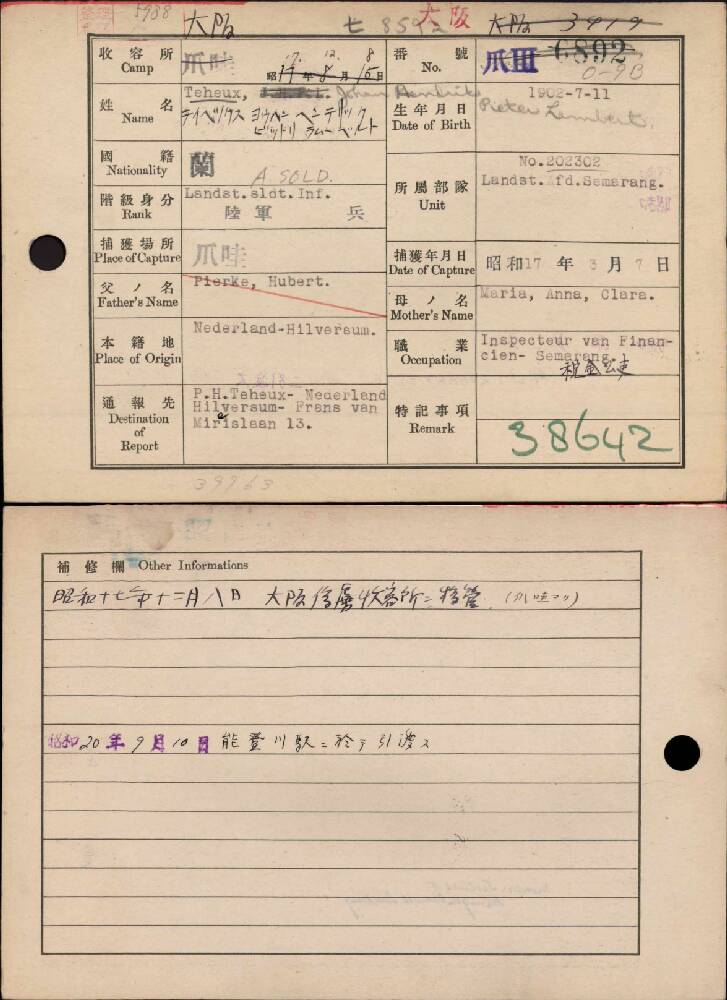 5988 大阪 七 8592 大阪 大阪 3919
收容所 Camp 爪哇 17. 12. 8 昭17年8月15日
番號 No. 爪III 6892 0-9B
姓名 Name Teheux, J.H.P.L. Johan Hendrik
テイヘツクス ヨウハン ヘンデリック
ピットリ ラムベルト
生年月日 Date of Birth 1902-7-11
Pieter Lambert.
國籍 Nationality 蘭 A SOLD.
所屬部隊 Unit No.202302
Landst. Afd.Semarang.
階級身分 Rank Landst.sldt.Inf.
陸軍 兵
捕獲場所 Place of Capture 爪哇
捕獲年月日 Date of Capture 昭和17年3月7日
父ノ名 Father's Name Pierke, Hubert.
母ノ名 Mother's Name Maria, Anna, Clara.
本籍地 Place of Origin Nederland-Hilversum.
職業 Occupation Inspecteur van Finan-
cien- Semarang.
通報先 Destination of Report P.H.Teheux- Nederland
Hilversum- Frans van
Mirislaan 13.
e
特記事項 Remark 38642
39963
補修欄 Other Informations
昭和十七年十二月八日 大阪俘虜收容所ニ移管 (爪哇ヨリ)
昭和20年9月10日 能登川駅ニ於テ引渡ス